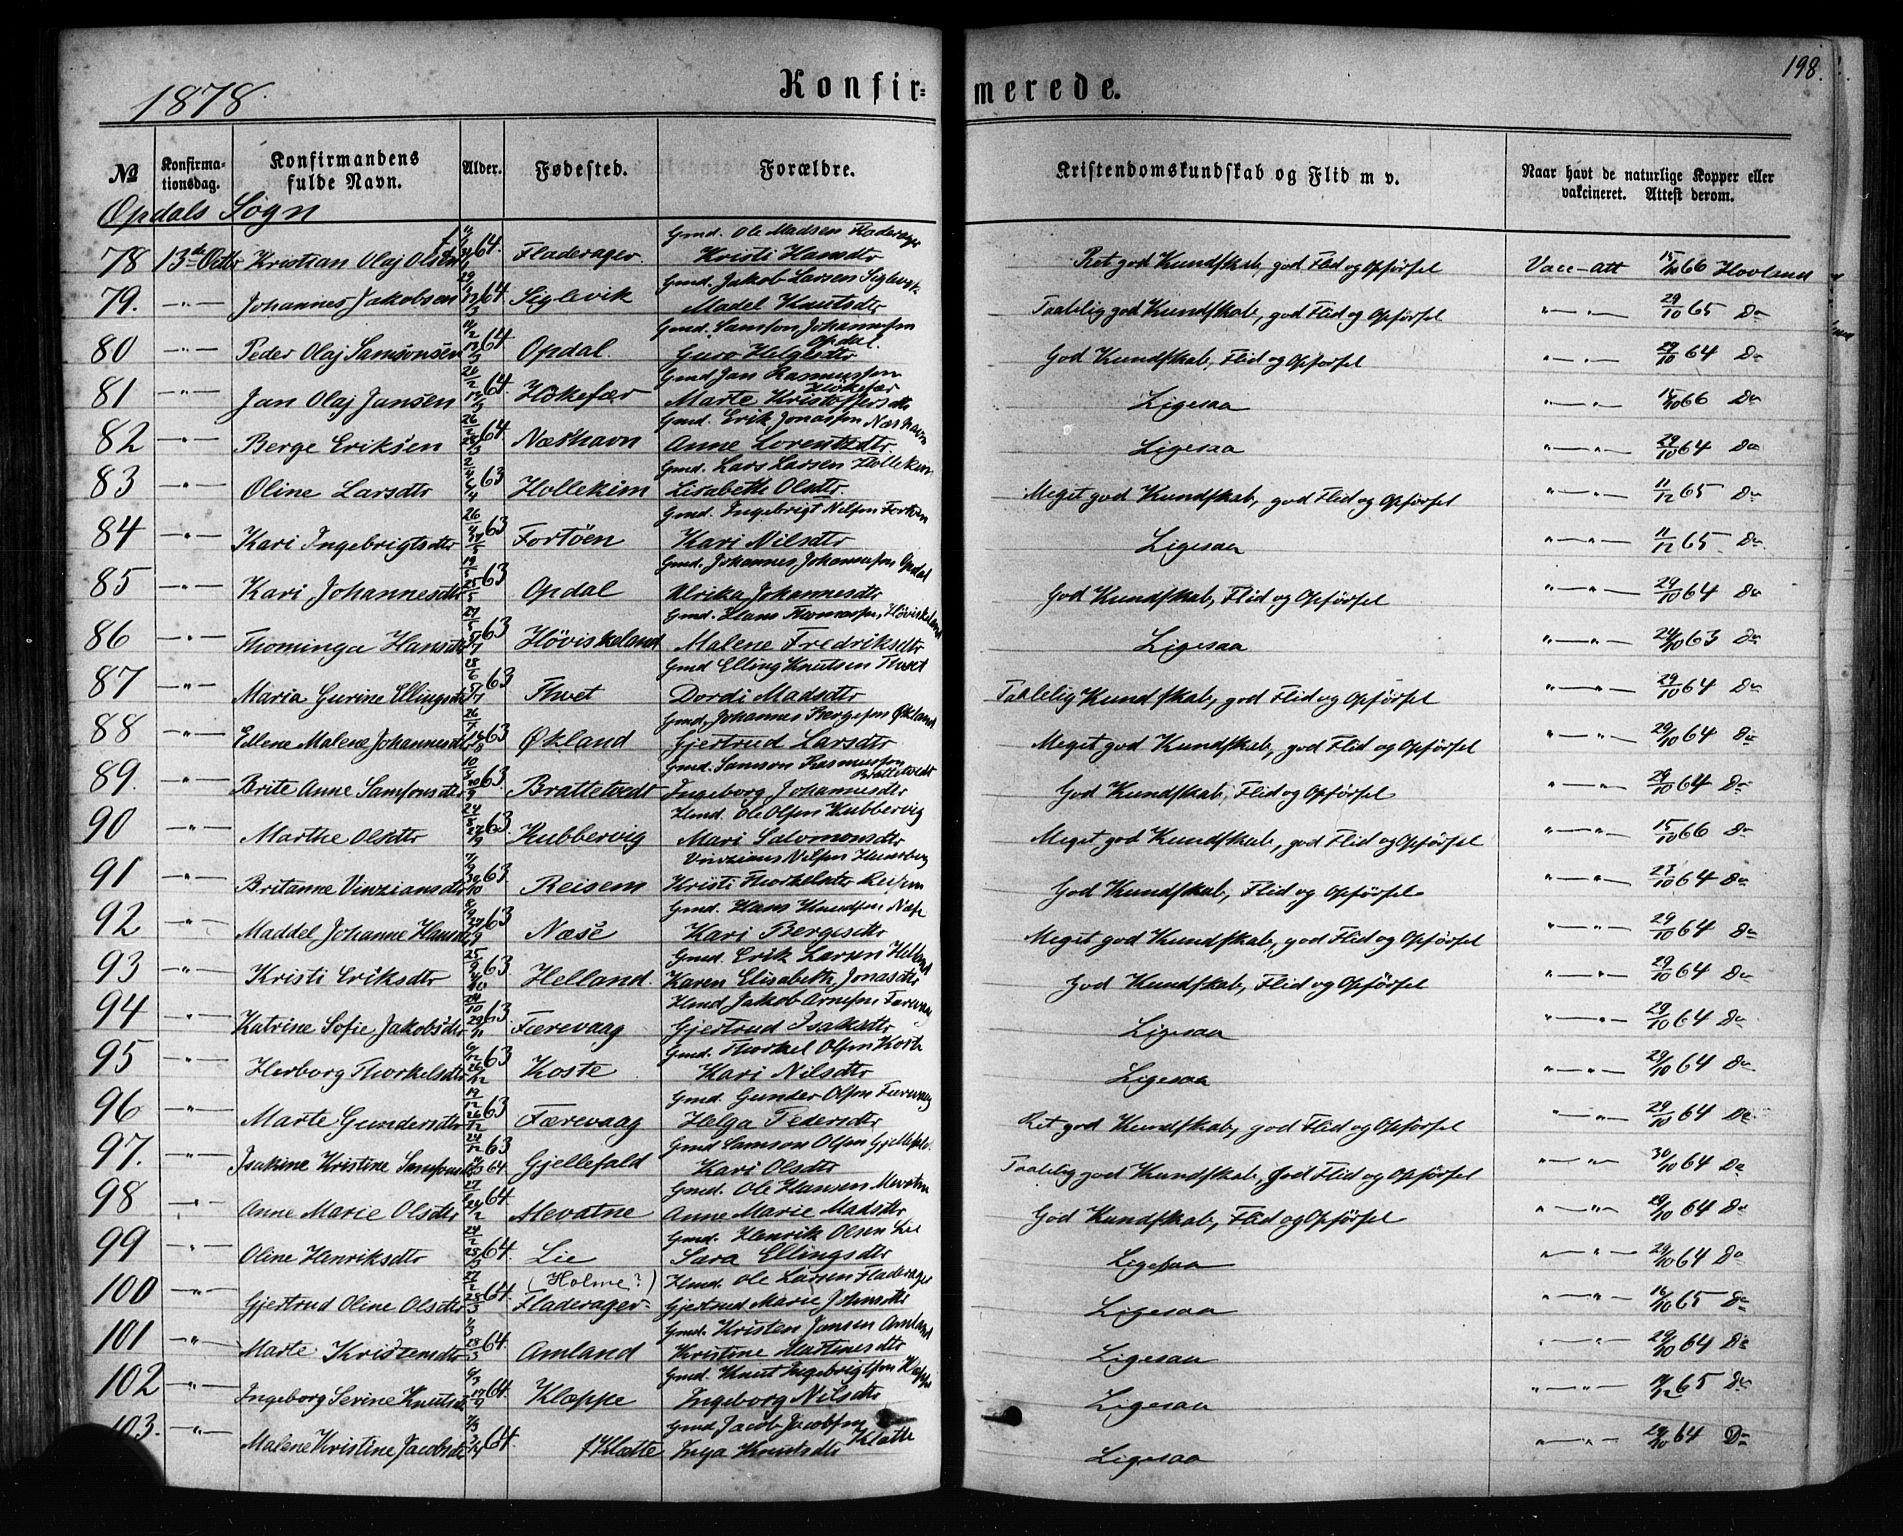 198.
1878.
Konfirmerede.
No Konfirmationsdag. Konfirmandens fulde Navn. Alder. Fødested. Forældre. Kristendomskundskab og Flid m v. Naar havt de naturlige Kopper eller vakcineret. Attest derom.
Opdals Sogn
Gmd. Ole Madsen Fladerager
78 13de Octbr Kristian Olaj Olsen 64. Fladerager. Kristi Hansdtr Ret god Kundskab, god Flid og Opførsel Vacc-att 15/10 66 Hovland
Gmd. Jakob Larsen Siglevik
79. -"- Johannes Jakobsen 64 Siglevik Madel Knutsdtr Taalelig god Kundskab, god Flid og Opførsel -"- 29/10 65 Do
Gmd. Samson Johannesen Opdal.
80 -"- Peder Olaj Samsonsen 64 Opdal. Guro Helgesdtr God Kundskab, Flid og Opførsel -"- 29/10 64 Do
Gmd Jan Rasmussen Hökefær
81 -"- Jan Olaj Jansen 64. Hökefær Marte Kristoffersdtr Ligesaa -"- 15/10 66 Do
Gmd. Erik Jonassen Næshavn
82 -"- Berge Eriksen 64 Næshavn Anne Lorentzdtr. Ligesaa -"- 29/10 64 Do
Gmd. Lars Larsen Hollekim
83 -"- Oline Larsdtr 63 Hollekim Lisabeth Olsdtr. Meget god Kundskab, god Flid og Opførsel -"- 11/12 65 Do
Gmd. Ingebrigt Nilsen Fortöen
84 -"- Kari Ingebrigtsdtr 63 Fortöen Kari Nilsdtr Ligesaa -"- 11/12 65. Do.
Gmd. Johannes Johannesen Opdal
85 -"- Kari Johannesdtr 63 Opdal Ulrika Johannesdtr God Kundskab, Flid og Opførsel -"- 29/10 64 Do
Gmd. Hans Thomassen, Höviskeland
86 -"- Thominga Hansdtr 63 Höviskeland Malene Fredriksdtr Ligesaa -"- 24/10 63 Do
Gmd Elling Knutsen Thvet
87 -"- Maria Gurine Ellingsdtr 63 Thvet Dordi Madsdtr Taalelig Kundskab, god Flid og Opførsel -"- 29/10 64 Do
Gmd, Johannes Bergesen Økland
88 -"- Edlene Malene Johannesdtr 63 Økland Gjertrud Larsdtr Meget god Kundskab, god Flid og Opførsel -"- 29/10 64 Do
Gmd. Samson Rasmussen Brattetvedt
89. -"- Brite Anne Samsonsdtr 63. Brattetvedt Ingeborg Johannesdtr God Kundskab, Flid og Opførsel -"- 29/10 64 Do
Hmd. Ole Olsen Kubbervig
90 -"- Marthe Olsdtr 63 Kubbervig Mari Salomonsdtr Meget god Kundskab, god Flid og Opførsel -"- 15/10 66 Do
Vinzians Nilsen
91 -"- Britanne Vinziansdtr 63 Reisem Kristi Thorkelsdtr Reisem God Kundskab, Flid og Opførsel -"- 27/10 64 Do
Gmd. Hans Knudsen, Næse
92 -"- Maddel Johanne Hansdtr 63 Næse Kari Bergesdtr Meget god Kundskab, god Flid og Opførsel -"- 29/10 64 Do
Gmd. Erik Larsen Helland
93 -"- Kristi Eriksdtr 63 Helland. Karen Elisabeth Jonasdtr God Kundskab, Flid og Opførsel -"- 29/10 64 Do
Hmd Jakob Arnesen Færevaag
94 -"- Katrine Sofie Jakobsdtr 63 Færevaag Gjertrud Isaksdtr Ligesaa -"- 29/10 64 Do
Gmd. Thorkel Olsen Koste
95 -"- Herborg Thorkelsdtr 63 Koste Kari Nilsdtr Ligesaa -"- 29/10 64 Do
Gmd. Gunder Olsen Færevaag
96 -"- Marte Gundersdtr 63 Færevaag Helga Pedersdtr Ret god Kundskab, god Flid og Opførsel -"- 29/10 64 Do
Gmd Samson Olsen Gjellefald.
97. -"- Isakine Kristine Samsonsdtr 63 64. Gjellefald Kari Olsdtr Taalelig god Kundskab, god Flid og Opførsel -"- 30/10 64 Do
Gmd. Ole Hansen Mevatne
98 -"- Anne Marie Olsdtr 64. Mevatne Anne Marie Madsdtr God Kundskab, Flid og Opførsel -"- 29/10 64 Do
Gmd. Henrik Olsen Lie
99 -"- Oline Henriksdtr 64. Lie Sara Ellingsdtr Ligesaa -"- 29/10 64 Do
(Holme?) Hmd. Ole Larsen Fladerager
100 -"- Gjertrud Oline Olsdtr 64. Fladerager Gjertrud Marie Johnsdtr Ligesaa -"- 16/10 65 Do
Gmd. Kristen Jansen Amland
101 -"- Marte Kristensdtr 64. Amland Kristine Mattinesdtr Ligesaa -"- 29/10 64 Do
Gmd. Knut Ingebrigtsen Kleppe
102 -"- Ingeborg Serine Knutsdtr 64. Klæppe Ingeborg Nilsdtr Ligesaa -"- 65 Do
Gmd Jacob Jacobsen Klatte
103. -"- Malene Kristine Jacobsdtr 64. Klætte Inga Knutsdtr Ligesaa -"- 29/10 64 Do